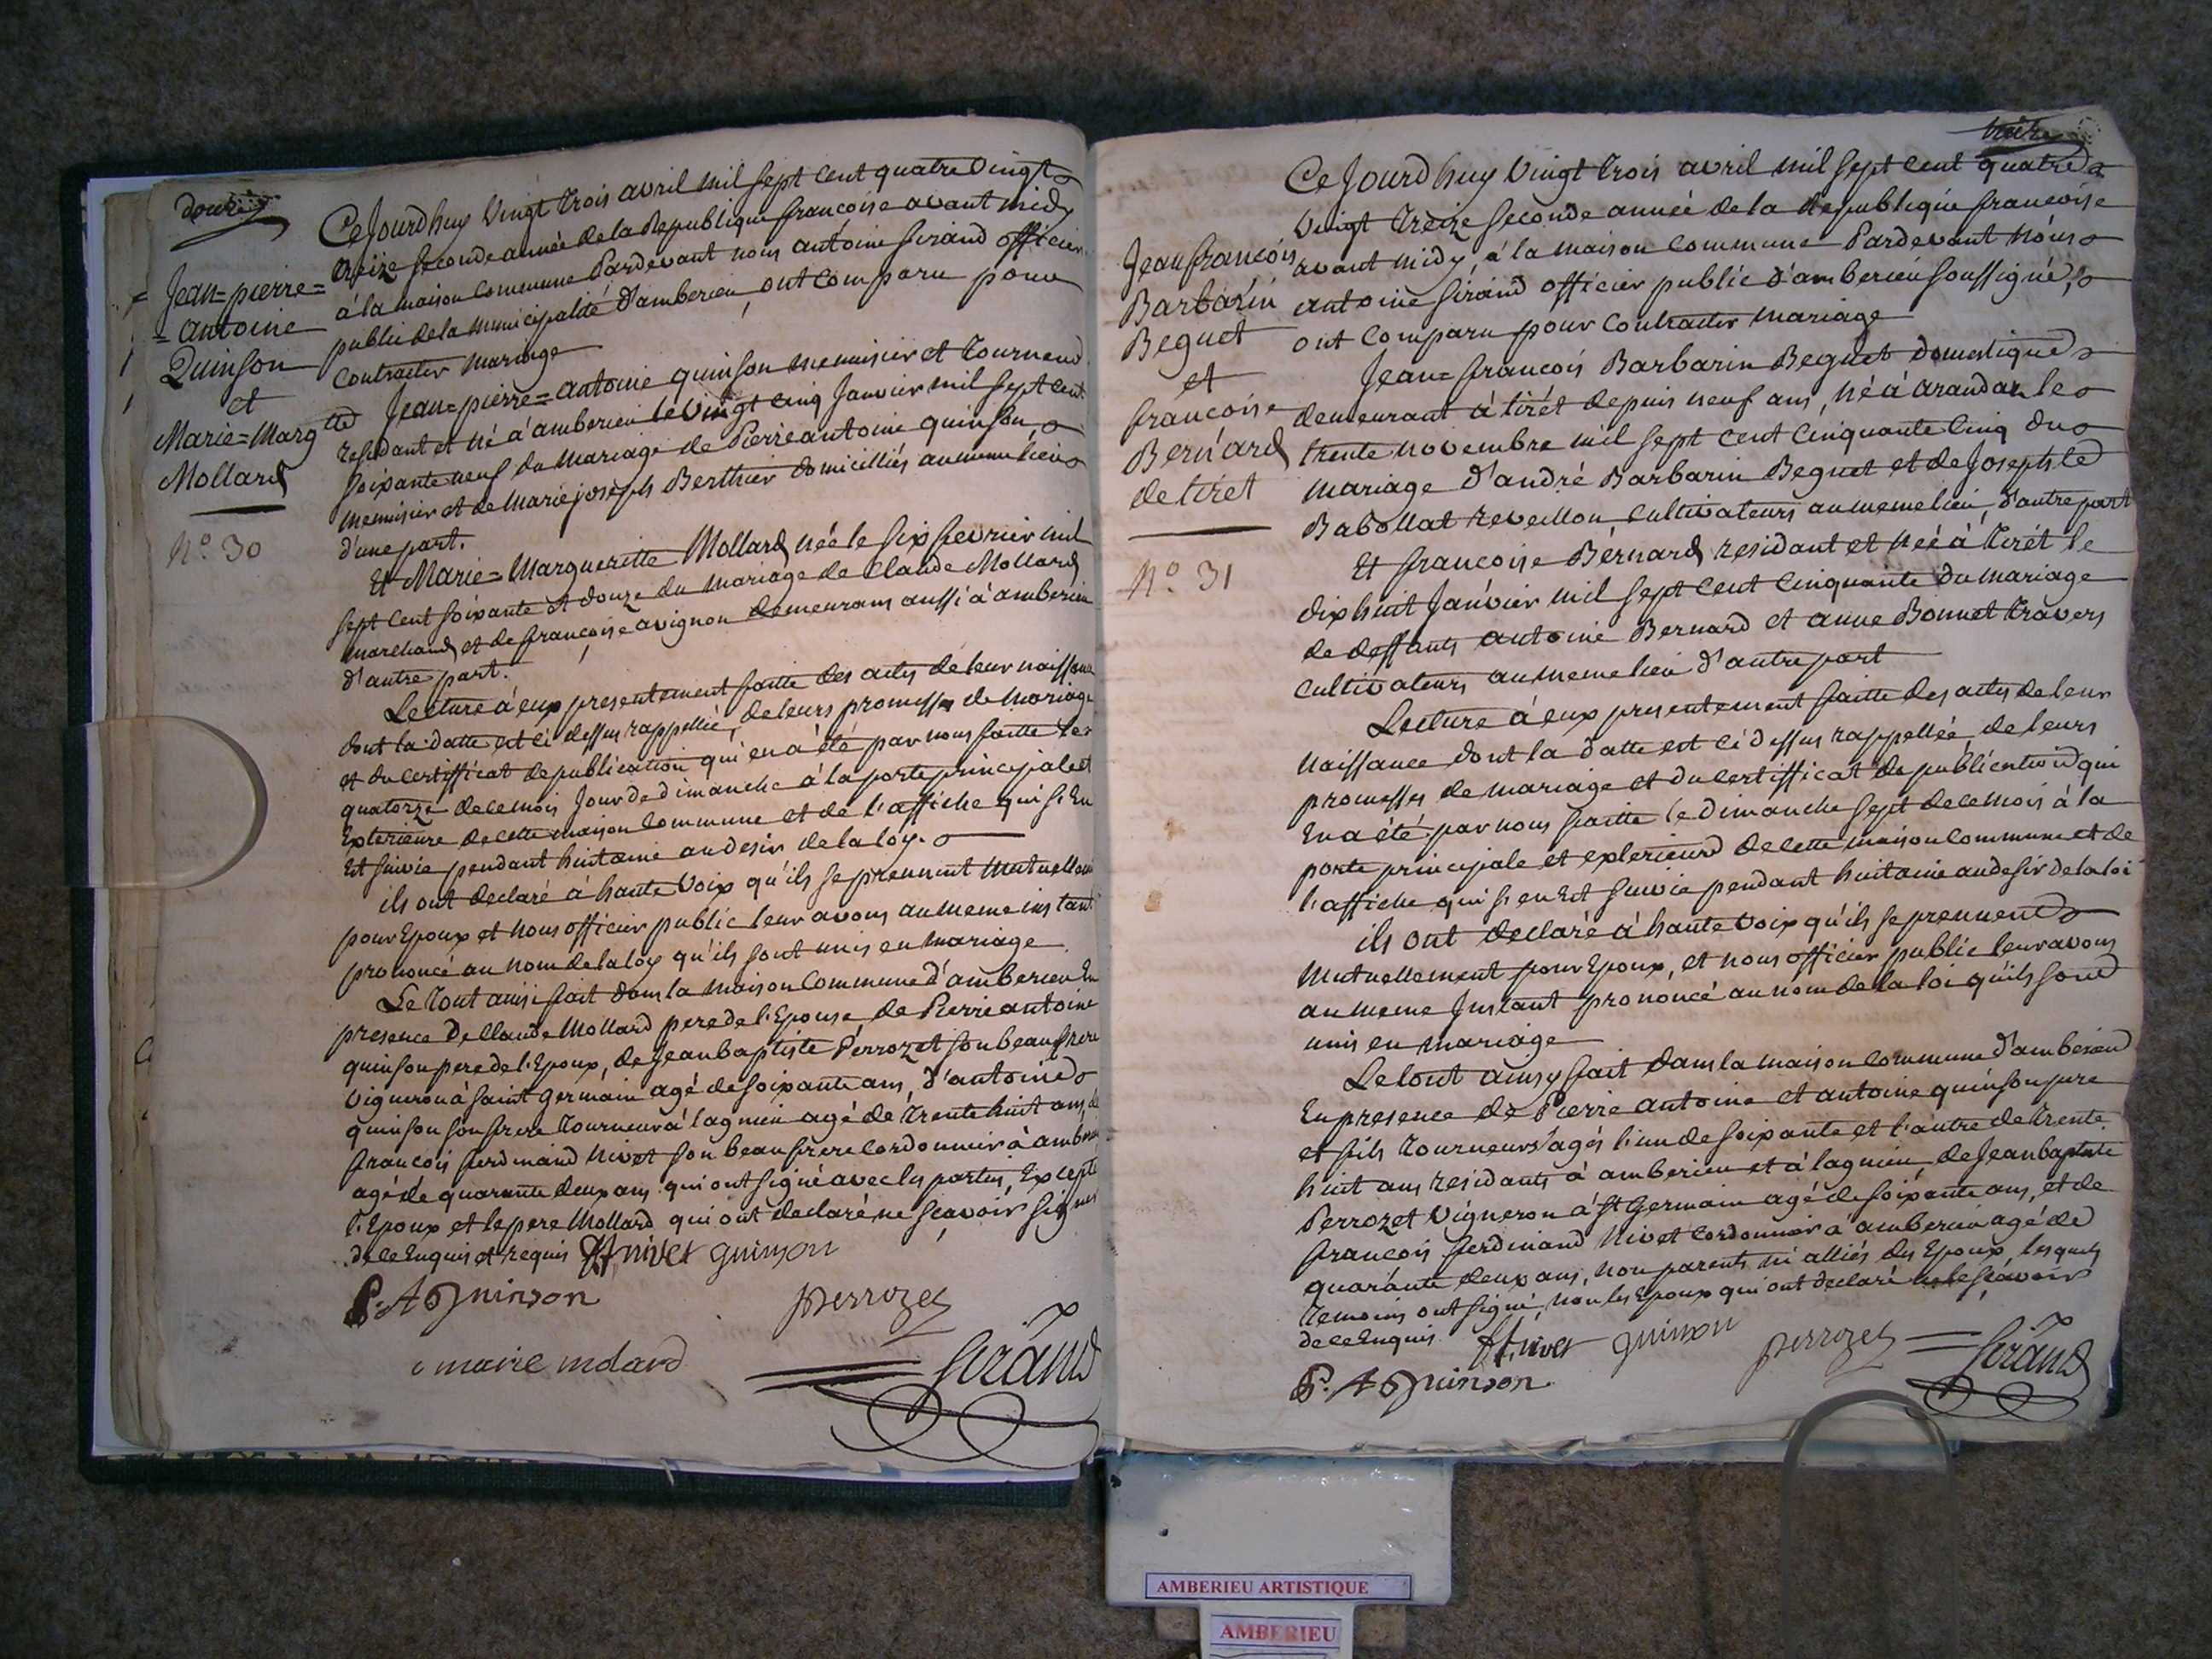 douze
Jean=pierre=
=antoine
Quinson
et
Marie=Margtte
Mollard
N.o 30
Ce Jourdhuy Vingt trois avril mil sept cent quatre Vingt
treize seconde année de la Republique françoise avant midy
à la maison commune Pardevant nous antoine sirand officier
public de la municipalité d'amberieu, ont comparu pour
contracter mariage
Jean=pierre=antoine quinson menuisier et tourneur
residant et né a amberieu le Vingt cinq Janvier mil sept cent
soixante neuf du mariage de Pierre antoine quinson
menuisier et de marie joseph Berthier domicilliés au meme lieu
d'une part.
Et Marie=Margueritte Mollard née le six fevrier mil
sept cent soixante et douze du mariage de Claude Mollard
marchand et de françoise avignon demeurans aussi à amberieu
d'autre part.
Lecture à eux presentement faitte des actes de leur naissance
dont la datte est ci dessus rappellée, de leurs promesses de mariage
et du certifficat de publication qui en a été par nous faitte le
quatorze de ce mois Jour de dimanche à la porte principale et
Exterieure de cette maison commune et de l'affiche qui s'en
Est suivie pendant huitaine au desir de la loy.
ils ont declaré à haute Voix qu'ils se prennent mutuellement
pour Epoux et nous officier public leur avons au meme instant
prononcé au nom de la loy qu'ils sont unis en mariage
Le tout ainsi fait dans la maison commune d'amberieu En
presence de Claude Mollard pere de l'Epouse, de Pierre antoine
quinson pere de l'Epoux, de Jean baptiste Perrozet son beau frere
Vigneron à saint germain agé de soixante ans, d'antoine
quinson son frere tourneur à lagnieu agé de trente huit ans, de
francois ferdinand Nivet son beau frere cordonnier à amberieu
agé de quarante deux ans qui ont signé avec les parties, Excepté
l'Epoux et le pere Mollard qui ont declaré ne sçavoir signer
de ce Enquis et requis ff nivet quinson
P. A Quinson perrozet
marie molard Sirand
treize
Jean francois
Barbarin
Beguet
et
francoise
Bernard
de tiret
N.o 31
Ce Jourdhuy Vingt trois avril mil sept cent quatre
Vingt treize seconde année de la Republique francoise
avant midy, à la maison commune Pardevant nous
antoine sirand officier public d'amberieu soussigné,
ont comparu pour contracter mariage
Jean=francois Barbarin Beguet domestique
demeurant à tirét depuis neuf ans, né à arandas le
trente novembre mil sept cent cinquante cinq du
mariage d'andré Barbarin Beguet et de Josephte
Babollat reveillon, cultivateurs au meme lieu, d'autre part
Et francoise Bernard residant et née à Tirét le
dix huit Janvier mil sept cent cinquante du mariage
de deffunts antoine Bernard et anne Bonnet travers
cultivateurs au meme lieu d'autre part
Lecture à eux presentement faitte des actes de leur
naissance dont la datte est ci dessus rappellée, de leurs
promesses de mariage et du certifficat de publication qui
En a été par nous faitte le dimanche sept de ce mois à la
porte principale et exterieure de cette maison commune et de
l'affiche qui s'en Est suivie pendant huitaine au desir de la loi
ils ont declaré à haute Voix qu'ils se prennent
mutuellement pour Epoux, et nous officier public leur avons
au meme Instant prononcé au nom de la loi qu'ils sont
unis en mariage
Le tout ainsy fait dans la maison commune d'amberieu
En presence de Pierre antoine et antoine quinson pere
et fils tourneurs agés l'un de soixante et l'autre de trente
huit ans residants à amberieu et à lagnieu, de Jean baptiste
Perrozet Vigneron à St Germain agé de soixante ans, et de
francois ferdinand Nivet cordonnier à amberieu agé de
quarante deux ans, non parents ni alliés des Epoux, lesquels
temoins ont signé, non les Epoux qui ont declaré ne le sçavoir
de ce Enquis. ff nivet quinson perrozet Sirand
P. A Quinson
AMBERIEU ARTISTIQUE
AMBERIEU